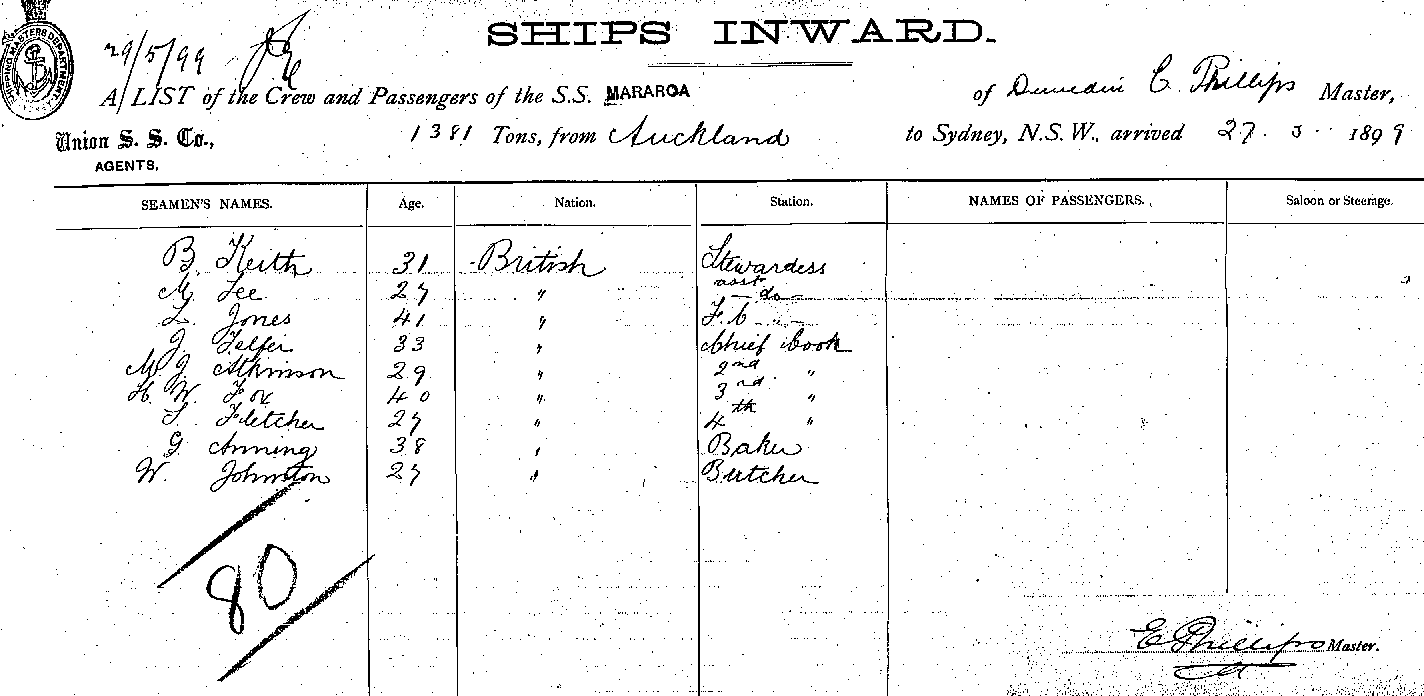 SHIPS INWARD.
SHIPPING MASTERS DEPARTMENT
29/5/99
A LIST of the Crew and Passengers of the S.S. MARAROA of Dunedin C. Phillips Master,
Union S. S. Co., AGENTS. 1381 Tons, from Auckland to Sydney, N.S.W., arrived 27. 5. 1899
SEAMEN'S NAMES. Age. Nation. Station. NAMES OF PASSENGERS. Saloon or Steerage.
B. Keith 31 British Stewardess
M. Lee 27 " asst do
L. Jones 41 " F.C
J. Telfer 33 " Chief Cook
M J. Atkinson 29 " 2nd "
H. W. Fox 40 " 3rd "
S. Fletcher 27 " 4th "
G. Anning 38 " Baker
W. Johnston 27 " Butcher
80
E Phillips Master.